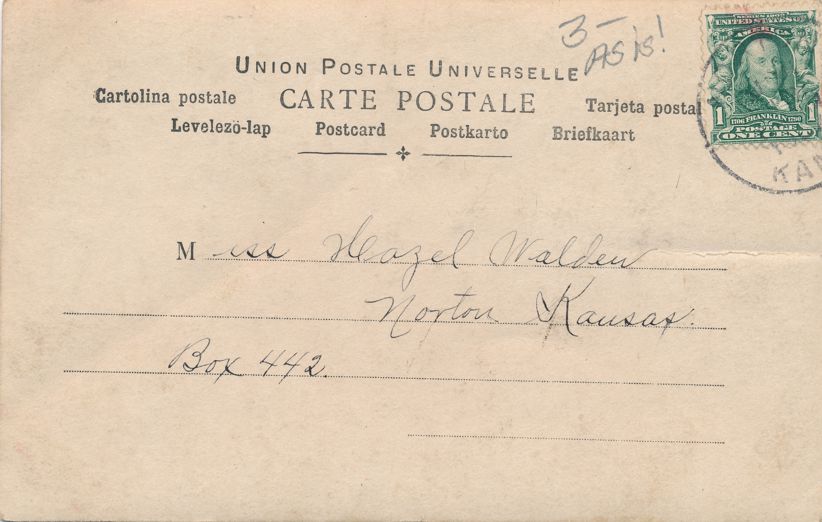 3- As is!
SERIES 1902
UNITED STATES OF
AMERICA
1 1706 FRANKLIN 1790 1
POSTAGE
ONE CENT
KAN
UNION POSTALE UNIVERSELLE
Cartolina postale CARTE POSTALE Tarjeta postal
Levelező-lap Postcard Postkarto Briefkaart
Miss Hazel Walden
Norton Kansas.
Box 442.